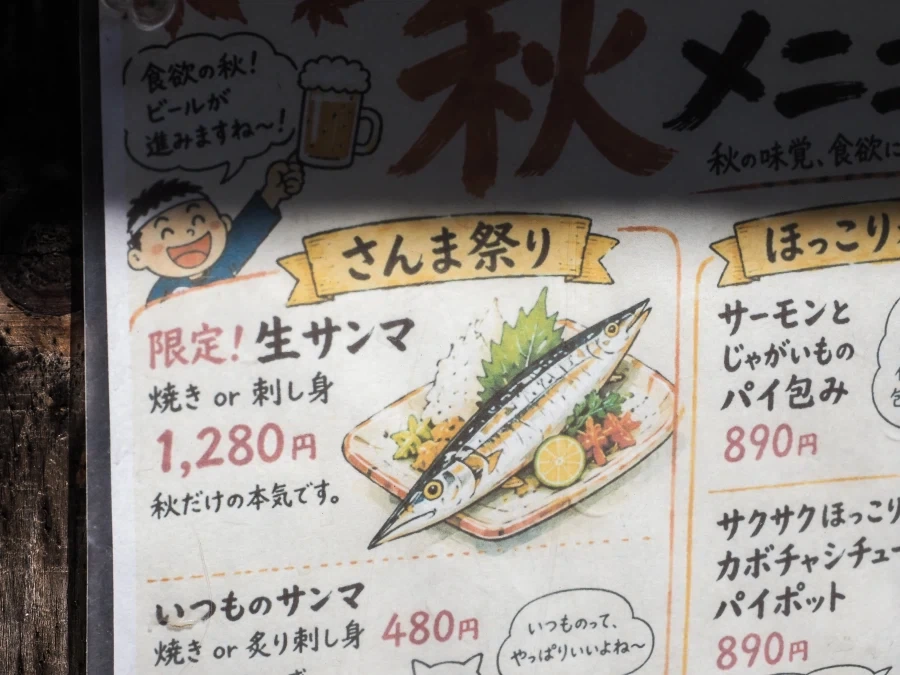 食欲の秋！
ビールが
進みますね～！
秋メニュ
秋の味覚、食欲に
さんま祭り
限定！生サンマ
焼き or 刺し身
1,280円
秋だけの本気です。
いつものサンマ
焼き or 炙り刺し身
480円
いつものって、
やっぱりいいよね～
ほっこり
サーモンと
じゃがいもの
パイ包み
890円
サクサクほっこり
カボチャシチュー
パイポット
890円